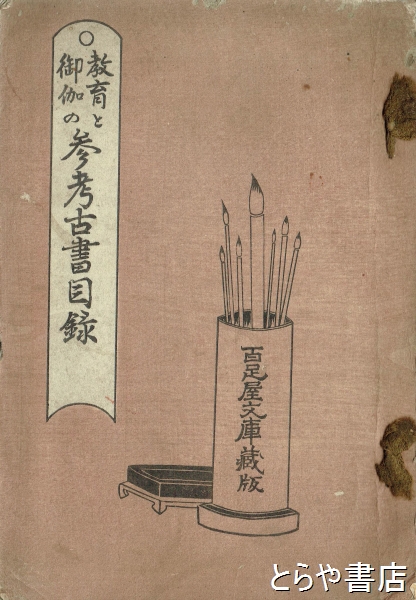 教育と
御伽の
参考古書目録
百足屋文庫蔵版
とらや書店